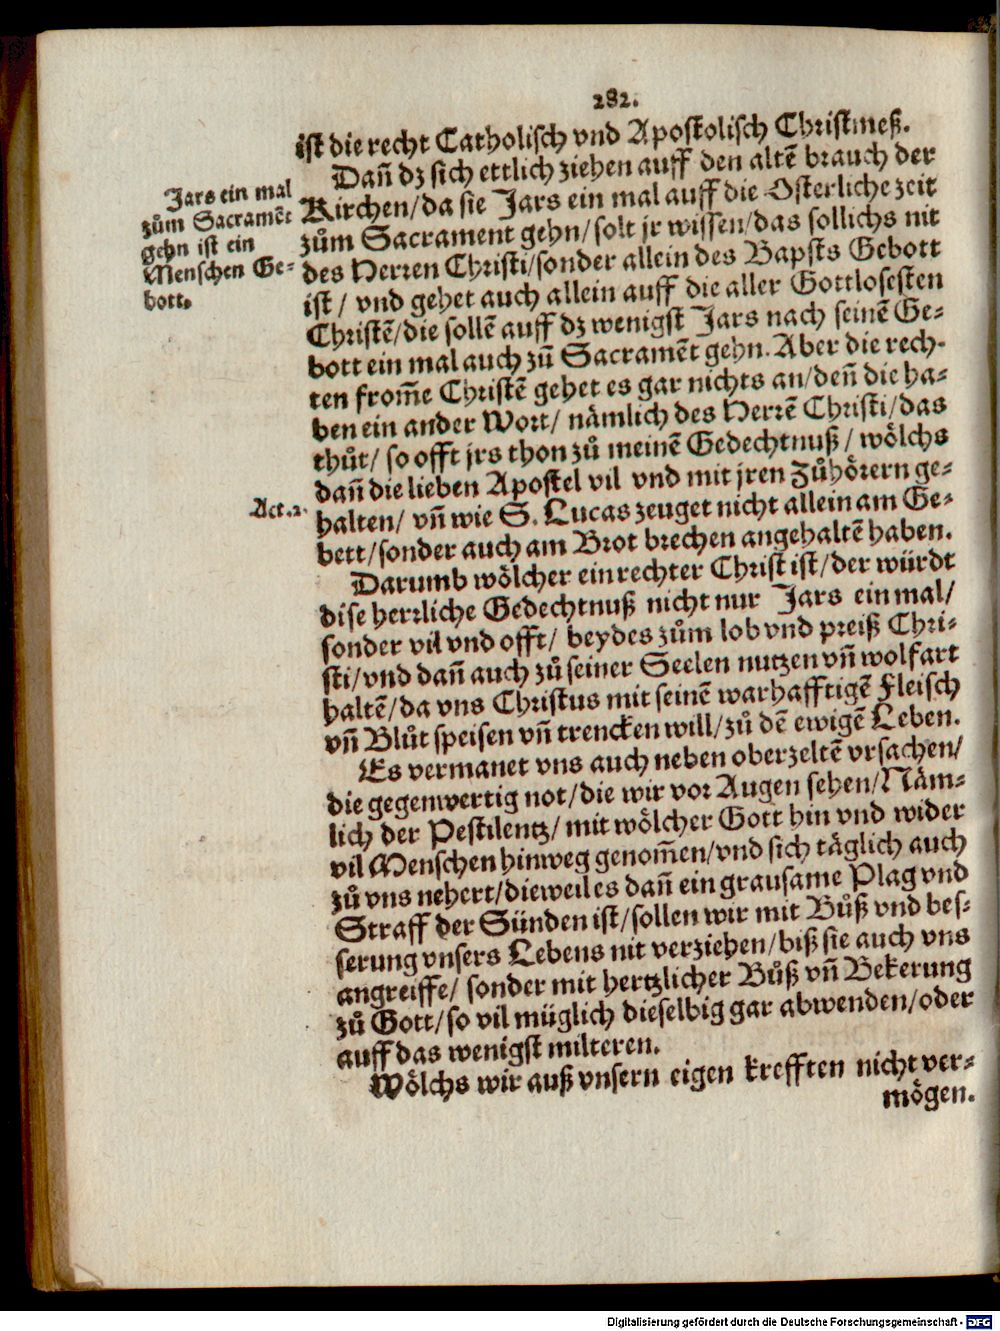 282.
ist die recht Catholisch vnd Apostolisch Christmeß.
Dañ dz sich ettlich ziehen auff den altẽ brauch der
Kirchen/da sie Jars ein mal auff die Osterliche zeit
zům Sacrament gehn/solt jr wissen/das sollichs nit
des Herren Christi/sonder allein des Bapsts Gebott
ist/ vnd gehet auch allein auff die aller Gottlosesten
Christẽ/die sollẽ auff dz wenigst Jars nach seinẽ Ge-
bott ein mal auch zů Sacramẽt gehn. Aber die rech-
ten from̃e Christẽ gehet es gar nichts an/deñ die ha-
ben ein ander Wort/ nämlich des Herrẽ Christi/das
thůt/ so offt jrs thon zů meinẽ Gedechtnuß/ wölchs
dañ die lieben Apostel vil vnd mit jren Zůhörern ge-
halten/ vñ wie S. Lucas zeuget nicht allein am Ge-
bett/sonder auch am Brot brechen angehaltẽ haben.
Darumb wölcher ein rechter Christ ist/der würdt
dise herrliche Gedechtnuß nicht nur Jars ein mal/
sonder vil vnd offt/ beydes zům lob vnd preiß Chri-
sti/vnd dañ auch zů seiner Seelen nutzen vñ wolfart
haltẽ/da vns Christus mit seinẽ warhafftigẽ Fleisch
vñ Blůt speisen vñ trencken will/zů dẽ ewigẽ Leben.
Es vermanet vns auch neben oberzeltẽ vrsachen/
die gegenwertig not/die wir vor Augen sehen/Näm-
lich der Pestilentz/ mit wölcher Gott hin vnd wider
vil Menschen hinweg genom̃en/vnd sich täglich auch
zů vns nehert/dieweil es dañ ein grausame Plag vnd
Straff der Sünden ist/sollen wir mit Bůß vnd bes-
serung vnsers Lebens nit verziehen/biß sie auch vns
angreiffe/ sonder mit hertzlicher Bůß vñ Bekerung
zů Gott/so vil müglich dieselbig gar abwenden/oder
auff das wenigst milteren.
Wölchs wir auß vnsern eigen krefften nicht ver-
mögen.
Jars ein mal
zům Sacramẽt
gehn ist ein
Menschen Ge-
bott.
Act.2.
Digitalisierung gefördert durch die Deutsche Forschungsgemeinschaft - DFG